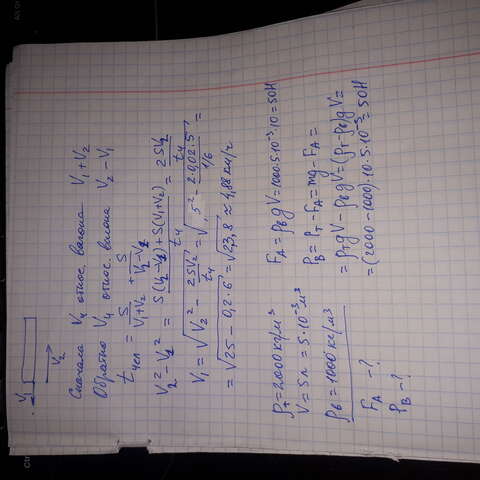 V₁
V₂
Сначала Vч относ. вагона V₁+V₂
Обратно Vч относ. вагона V₂-V₁
tчел = S/(V₁+V₂) + S/(V₂-V₁)
V₂²-V₁² = (S(V₂-V₁)+S(V₁+V₂))/tч = 2SV₂/tч
V₁ = √(V₂² - 2SV₂/tч) = √(5² - 2·0,02·5/(1/6)) =
= √(25-0,2·6) = √23,8 ≈ 4,88 км/ч
ρт=2000кг/м³
V=5л=5·10⁻³м³
ρв=1000кг/м³
F_A-?
P_B-?
F_A=ρвgV=1000·5·10⁻³·10=50Н
P_B=P_T-F_A=mg-F_A=
=ρтgV-ρвgV=(ρт-ρв)gV=
=(2000-1000)·10·5·10⁻³=50Н
Ctr